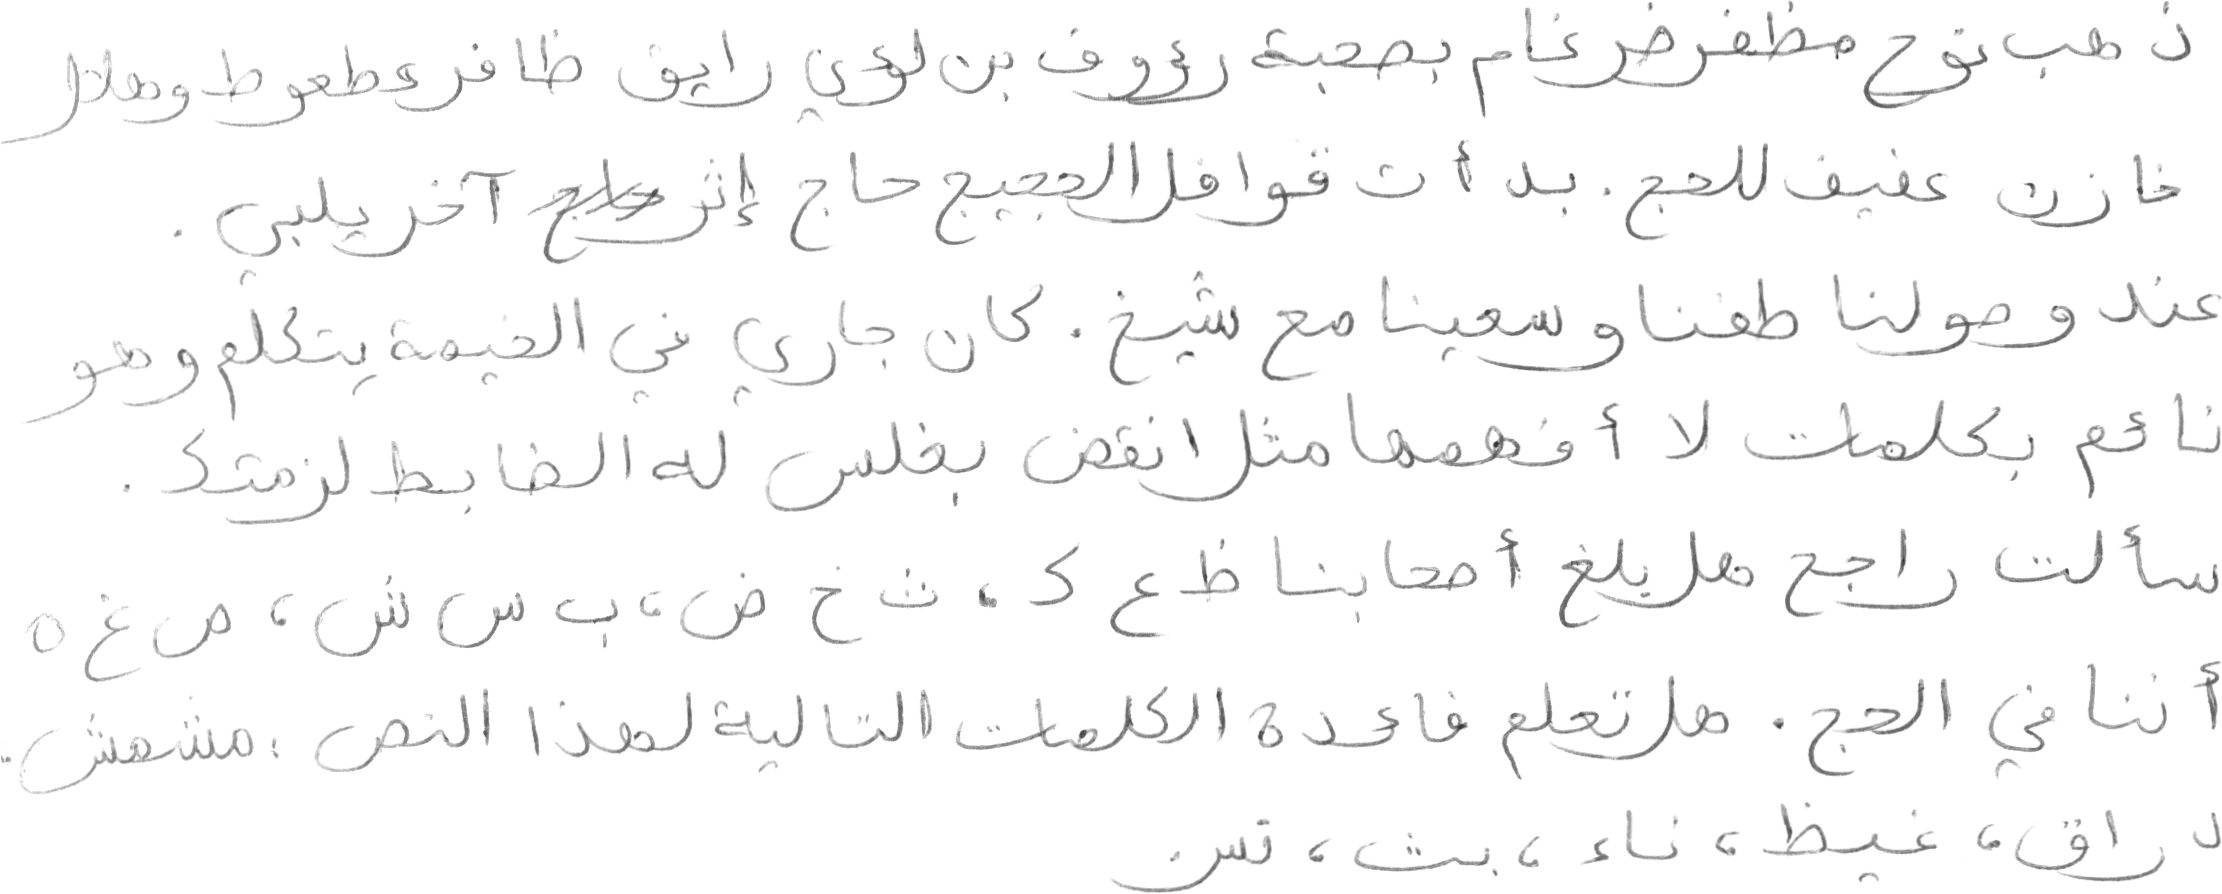 ذهب نوح مظفر ضرغام بصحبة رؤوف بن لؤي رايق ظافر عطعوط وهلال
خازن عفيف للحج. بدأت قوافل الحجيج حاج إثر آخر يلبي.
عند وصولنا طفنا وسعينا مع شيخ. كان جاري في الخيمة يتكلم وهو
نائم بكلمات لا أفهمها مثل انقض بغلس له الضابط لزمتك.
سألت راجح هل بلغ أصحابنا ظ ع ك، ث خ ض، ب س ش، ص غ ه
أننا في الحج. هل تعلم فائدة الكلمات التالية لهذا النص: مشمش.
دراق، غيظ، ناء، بث، تس